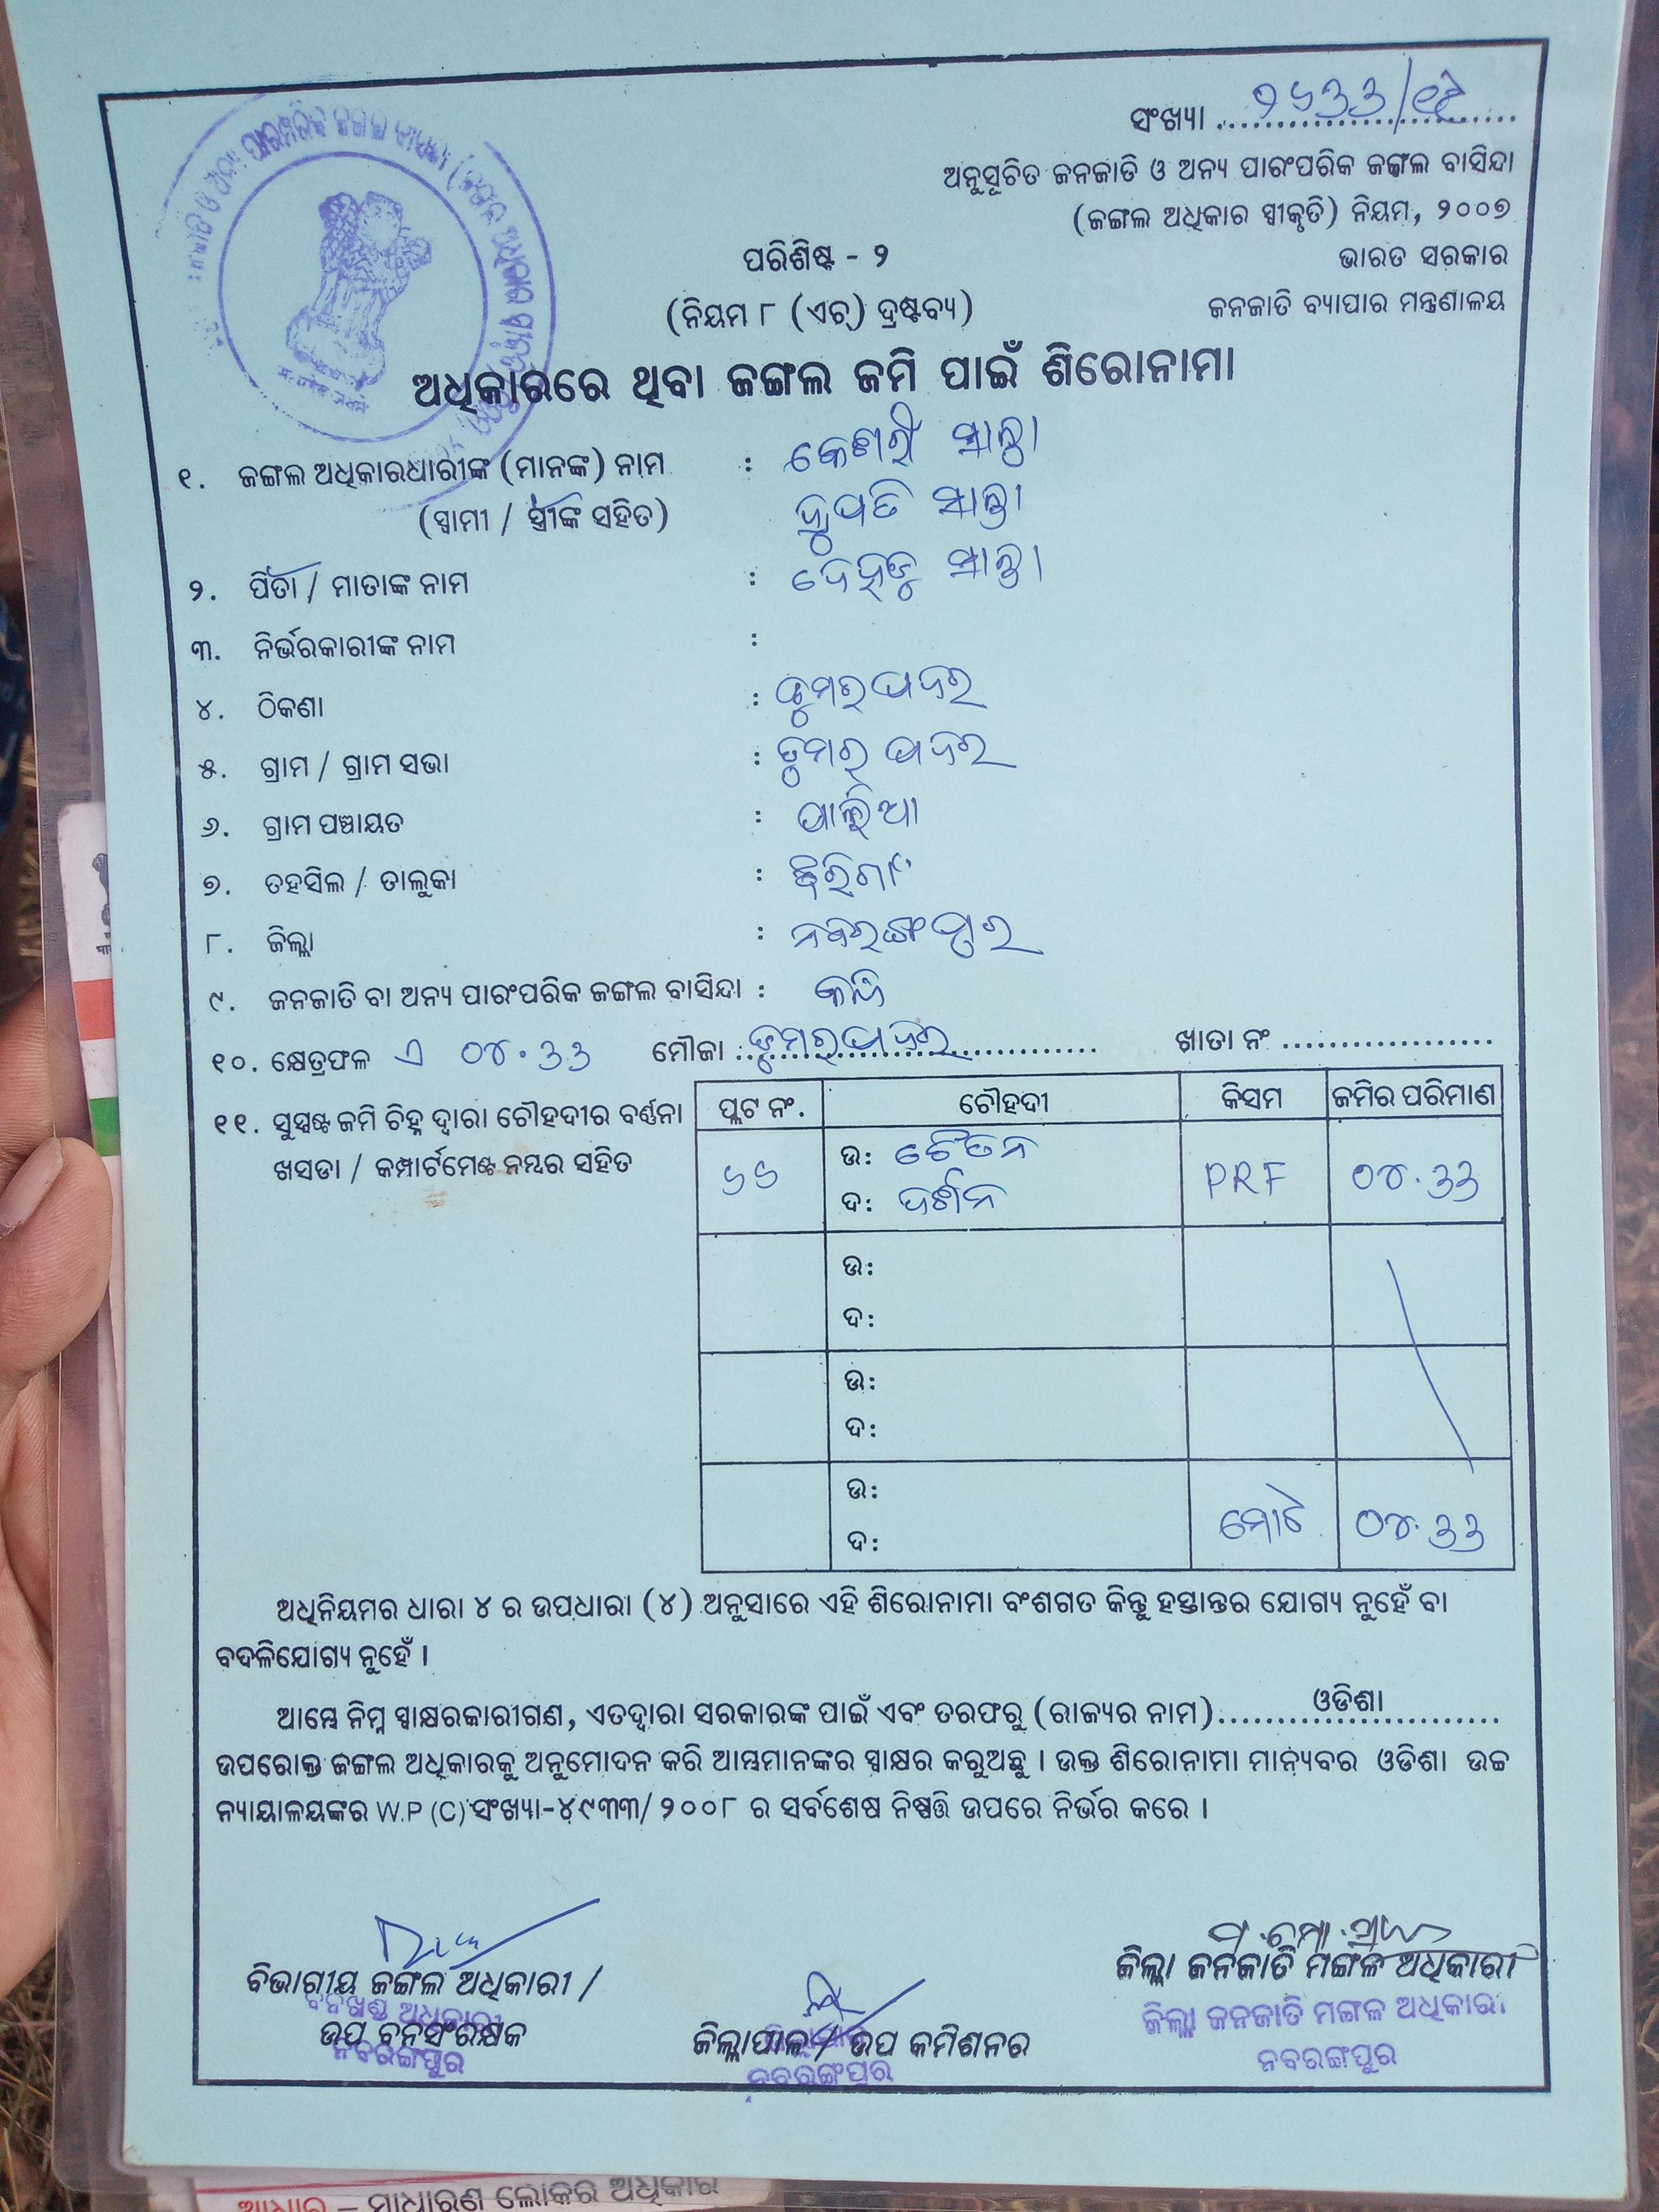 ସଂଖ୍ୟା ..... ୨୬୩୩/୧୧
ଅନୁସୂଚିତ ଜନଜାତି ଓ ଅନ୍ୟ ପାରଂପରିକ ଜଙ୍ଗଲ ବାସିନ୍ଦା
(ଜଙ୍ଗଲ ଅଧିକାର ସ୍ୱୀକୃତି) ନିୟମ, ୨୦୦୭
ପରିଶିଷ୍ଟ - ୨
ଭାରତ ସରକାର
(ନିୟମ ୮ (ଏଚ୍) ଦ୍ରଷ୍ଟବ୍ୟ)
ଜନଜାତି ବ୍ୟାପାର ମନ୍ତ୍ରଣାଳୟ
ଅଧିକାରରେ ଥିବା ଜଙ୍ଗଲ ଜମି ପାଇଁ ଶିରୋନାମା
୧. ଜଙ୍ଗଲ ଅଧିକାରଧାରୀଙ୍କ (ମାନଙ୍କ) ନାମ :
(ସ୍ୱାମୀ / ସ୍ତ୍ରୀଙ୍କ ସହିତ)
୨. ପିତା / ମାତାଙ୍କ ନାମ :
୩. ନିର୍ଭରକାରୀଙ୍କ ନାମ :
୪. ଠିକଣା : ଡୁମରପଦର
୫. ଗ୍ରାମ / ଗ୍ରାମ ସଭା : ଡୁମରପଦର
୬. ଗ୍ରାମ ପଞ୍ଚାୟତ :
୭. ତହସିଲ / ତାଲୁକା : ଝରିଗାଁ
୮. ଜିଲ୍ଲା : ନବରଙ୍ଗପୁର
୯. ଜନଜାତି ବା ଅନ୍ୟ ପାରଂପରିକ ଜଙ୍ଗଲ ବାସିନ୍ଦା :
୧୦. କ୍ଷେତ୍ରଫଳ ଏ ୦୪.୩୩ ମୌଜା : ଡୁମରପଦର ଖାତା ନଂ ..................
୧୧. ସୁସ୍ପଷ୍ଟ ଜମି ଚିହ୍ନ ଦ୍ୱାରା ଚୌହଦୀର ବର୍ଣ୍ଣନା
ଖସଡା / କମ୍ପାର୍ଟମେଣ୍ଟ ନମ୍ୱର ସହିତ
ପ୍ଲଟ ନଂ. ଚୌହଦୀ କିସମ ଜମିର ପରିମାଣ
୬୬ ଉ: ଚୈତନ PRF ୦୪.୩୩
ଦ: ଦର୍ଶନ
ଉ:
ଦ:
ଉ:
ଦ:
ଉ: ମୋଟ ୦୪.୩୩
ଦ:
ଅଧିନିୟମର ଧାରା ୪ ର ଉପଧାରା (୪) ଅନୁସାରେ ଏହି ଶିରୋନାମା ବଂଶଗତ କିନ୍ତୁ ହସ୍ତାନ୍ତର ଯୋଗ୍ୟ ନୁହେଁ ବା
ବଦଳିଯୋଗ୍ୟ ନୁହେଁ ।
ଆମ୍ଭେ ନିମ୍ନ ସ୍ୱାକ୍ଷରକାରୀଗଣ, ଏତଦ୍ୱାରା ସରକାରଙ୍କ ପାଇଁ ଏବଂ ତରଫରୁ (ରାଜ୍ୟର ନାମ)........ଓଡିଶା..........
ଉପରୋକ୍ତ ଜଙ୍ଗଲ ଅଧିକାରକୁ ଅନୁମୋଦନ କରି ଆମ୍ଭମାନଙ୍କର ସ୍ୱାକ୍ଷର କରୁଅଛୁ । ଉକ୍ତ ଶିରୋନାମା ମାନ୍ୟବର ଓଡିଶା ଉଚ୍ଚ
ନ୍ୟାୟାଳୟଙ୍କର W.P (C) ସଂଖ୍ୟା-୪୯୩୩/ ୨୦୦୮ ର ସର୍ବଶେଷ ନିଷ୍ପତ୍ତି ଉପରେ ନିର୍ଭର କରେ ।
ବିଭାଗୀୟ ଜଙ୍ଗଲ ଅଧିକାରୀ /
ବନଖଣ୍ଡ ଅଧିକାରୀ
ଉପ ବନସଂରକ୍ଷକ
ନବରଙ୍ଗପୁର
ଜିଲ୍ଲାପାଳ / ଉପ କମିଶନର
ନବରଙ୍ଗପୁର
ଜିଲ୍ଲା ଜନଜାତି ମଙ୍ଗଳ ଅଧିକାରୀ
ଜିଲ୍ଲା ଜନଜାତି ମଙ୍ଗଳ ଅଧିକାରୀ
ନବରଙ୍ଗପୁର
ଆଧାର – ସାଧାରଣ ଲୋକର ଅଧିକାର